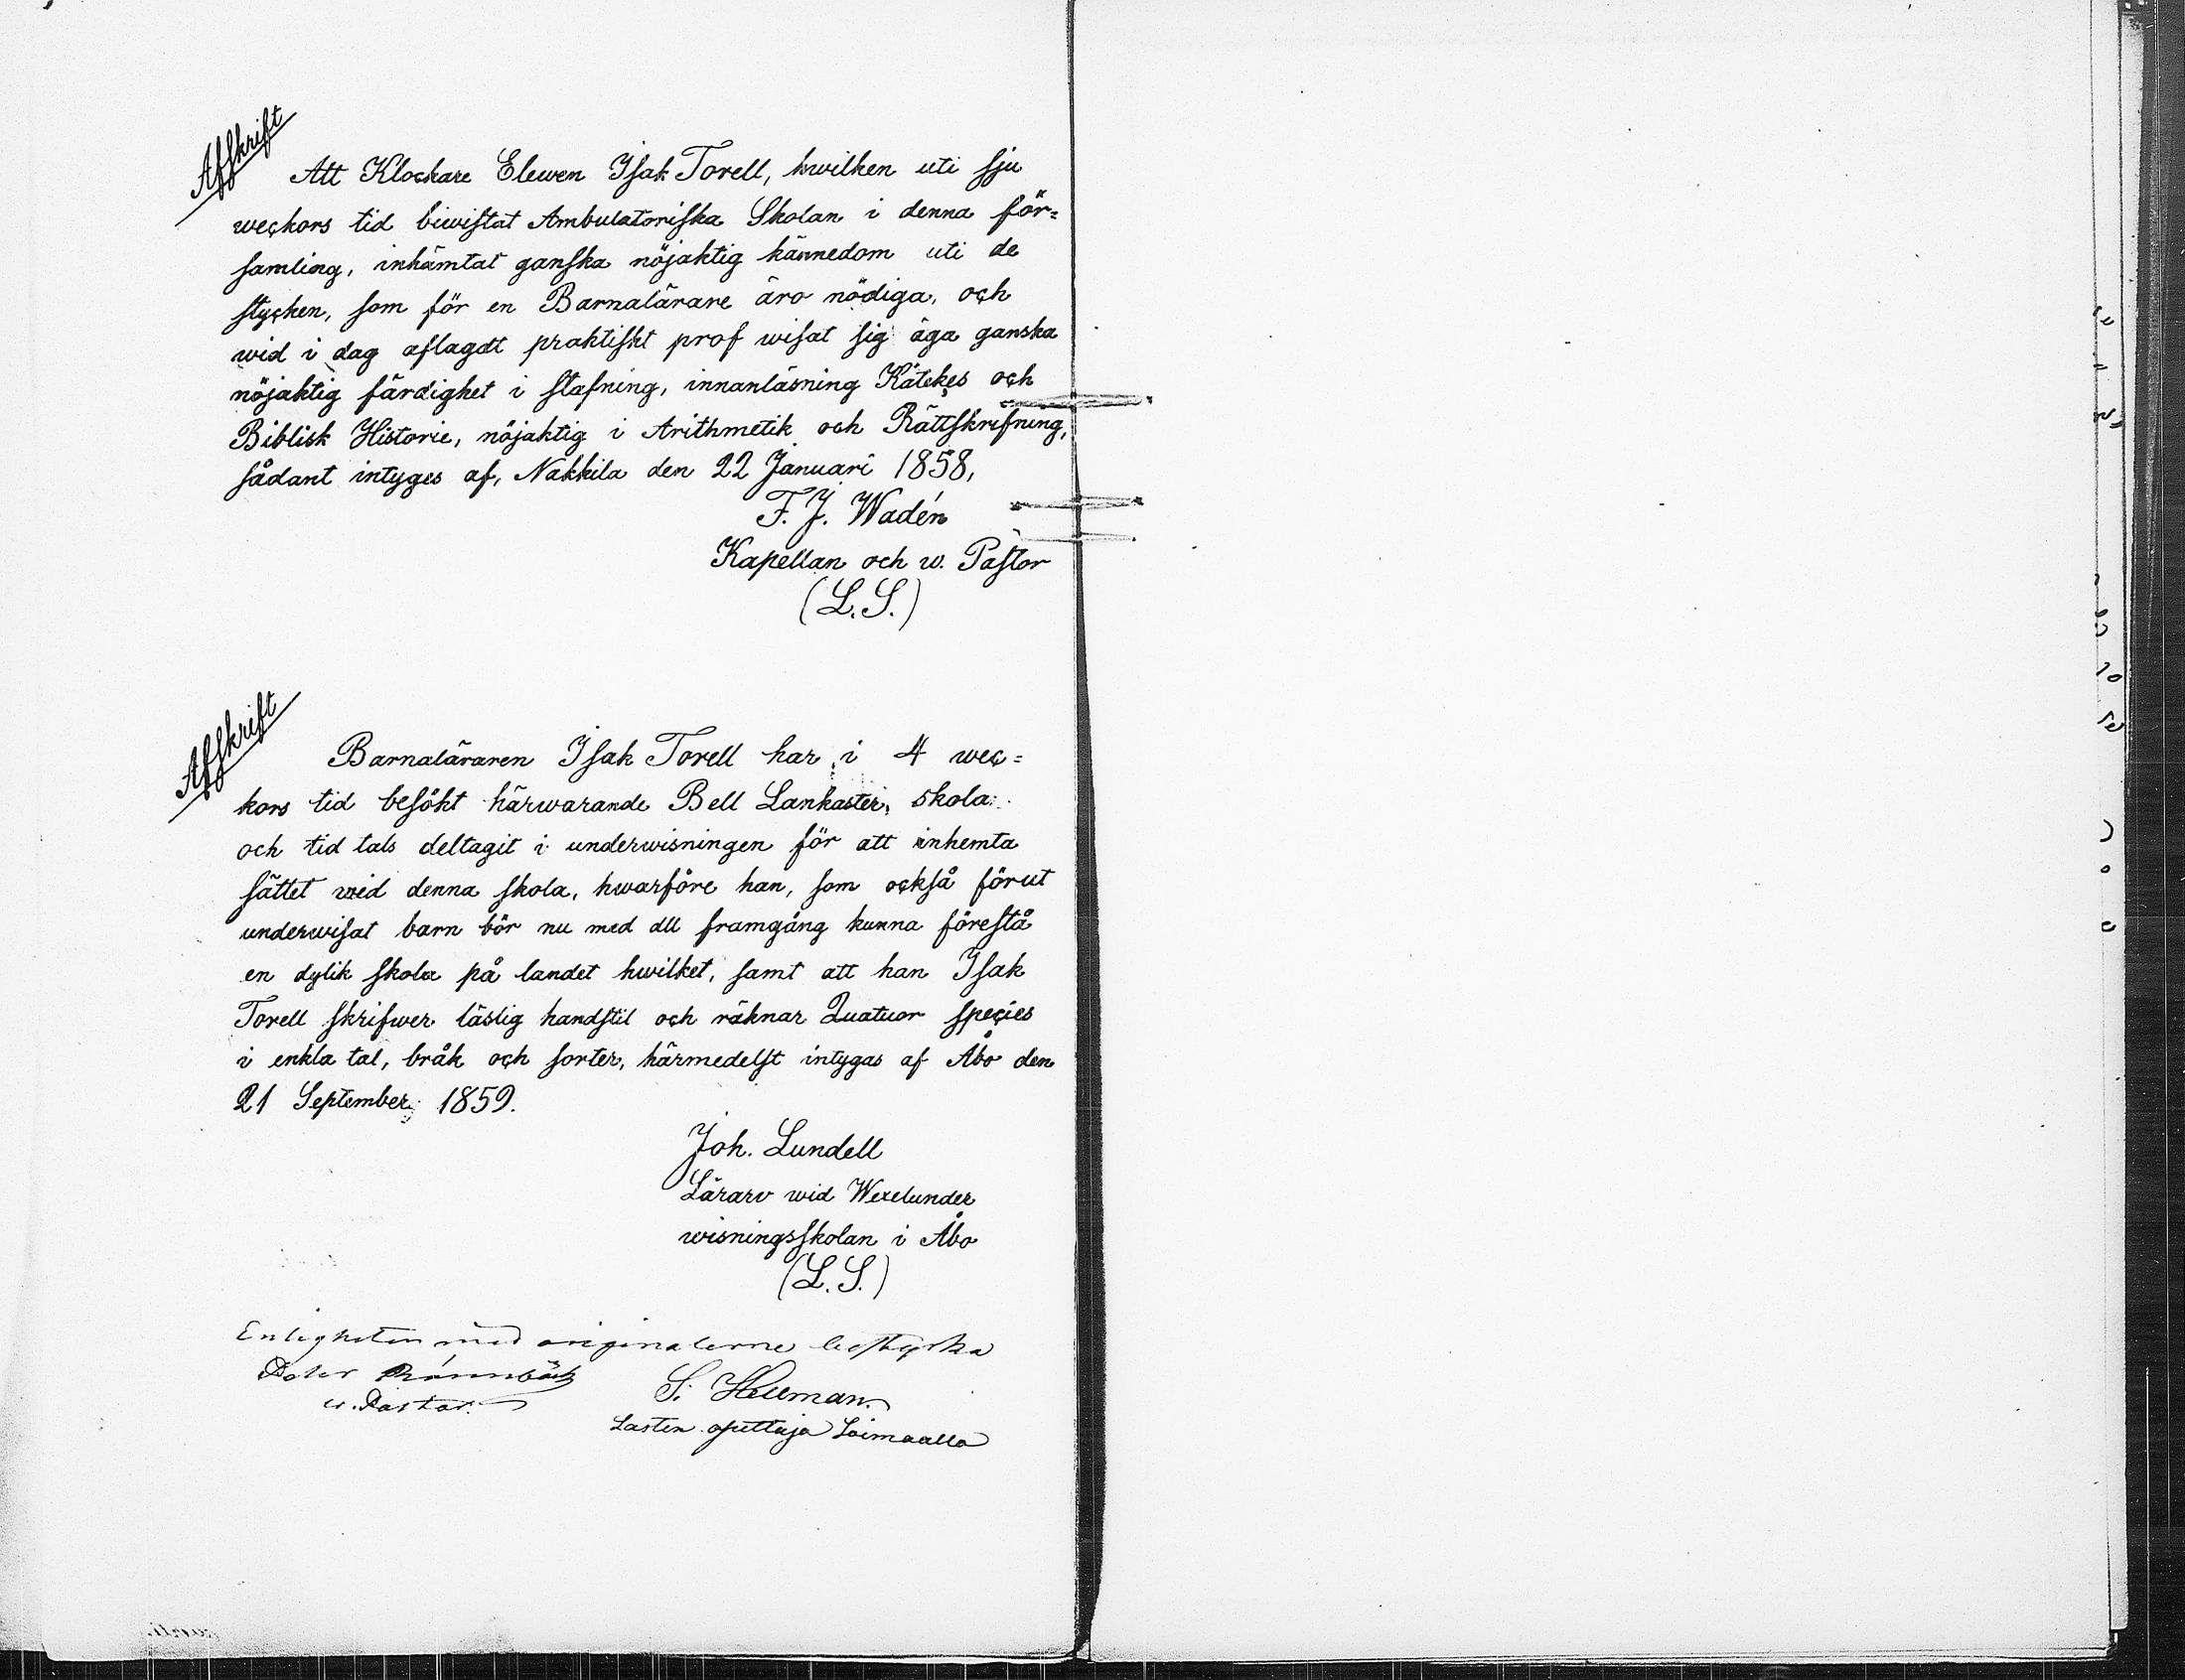 Afskrift
Att Klockare Elewen Isak Torell, hwilken uti sju
weckors tid biwistat Ambulatoriska Skolan i denna för=
samling, inhämtat ganska nöjaktig kännedom uti de
stycken, som för en Barnalärare äro nödiga, och
wid i dag aflagdt praktiskt prof wisat sig äga ganska
nöjaktig färdighet i stafning, innanläsning Katekes och
Biblisk Historie, nöjaktig i Arithmetik och Rättskrifning,
sådant intyges af, Nakkila den 22 Januari 1858,
F. J. Wadén
Kapellan och w. Pastor
(L.S.)
Afskrift
Barnaläraren Isak Torell har i 4 wec=
kors tid besökt härwarande Bell Lankaster, skola
och tid tals deltagit i underwisningen för att inhemta
sättet wid denna skola, hwarföre han, som också förut
underwisat barn bör nu med all framgång kunna förestå
en dylik skola på landet hwilket, samt att han Isak
Torell skrifwer läslig handstil och räknar Quatuor species
i enkla tal, bråk och sorter, härmedelst intygas af Åbo den
21 September 1859.
Joh. Lundell
Lärare wid Wexelunder
wisningsskolan i Åbo
(L.S.)
Enligheten med originalerne bestyrka
Peter Rönnbäck
w. Pastor.
S. Hellman
Lasten opettaja Loimaalla